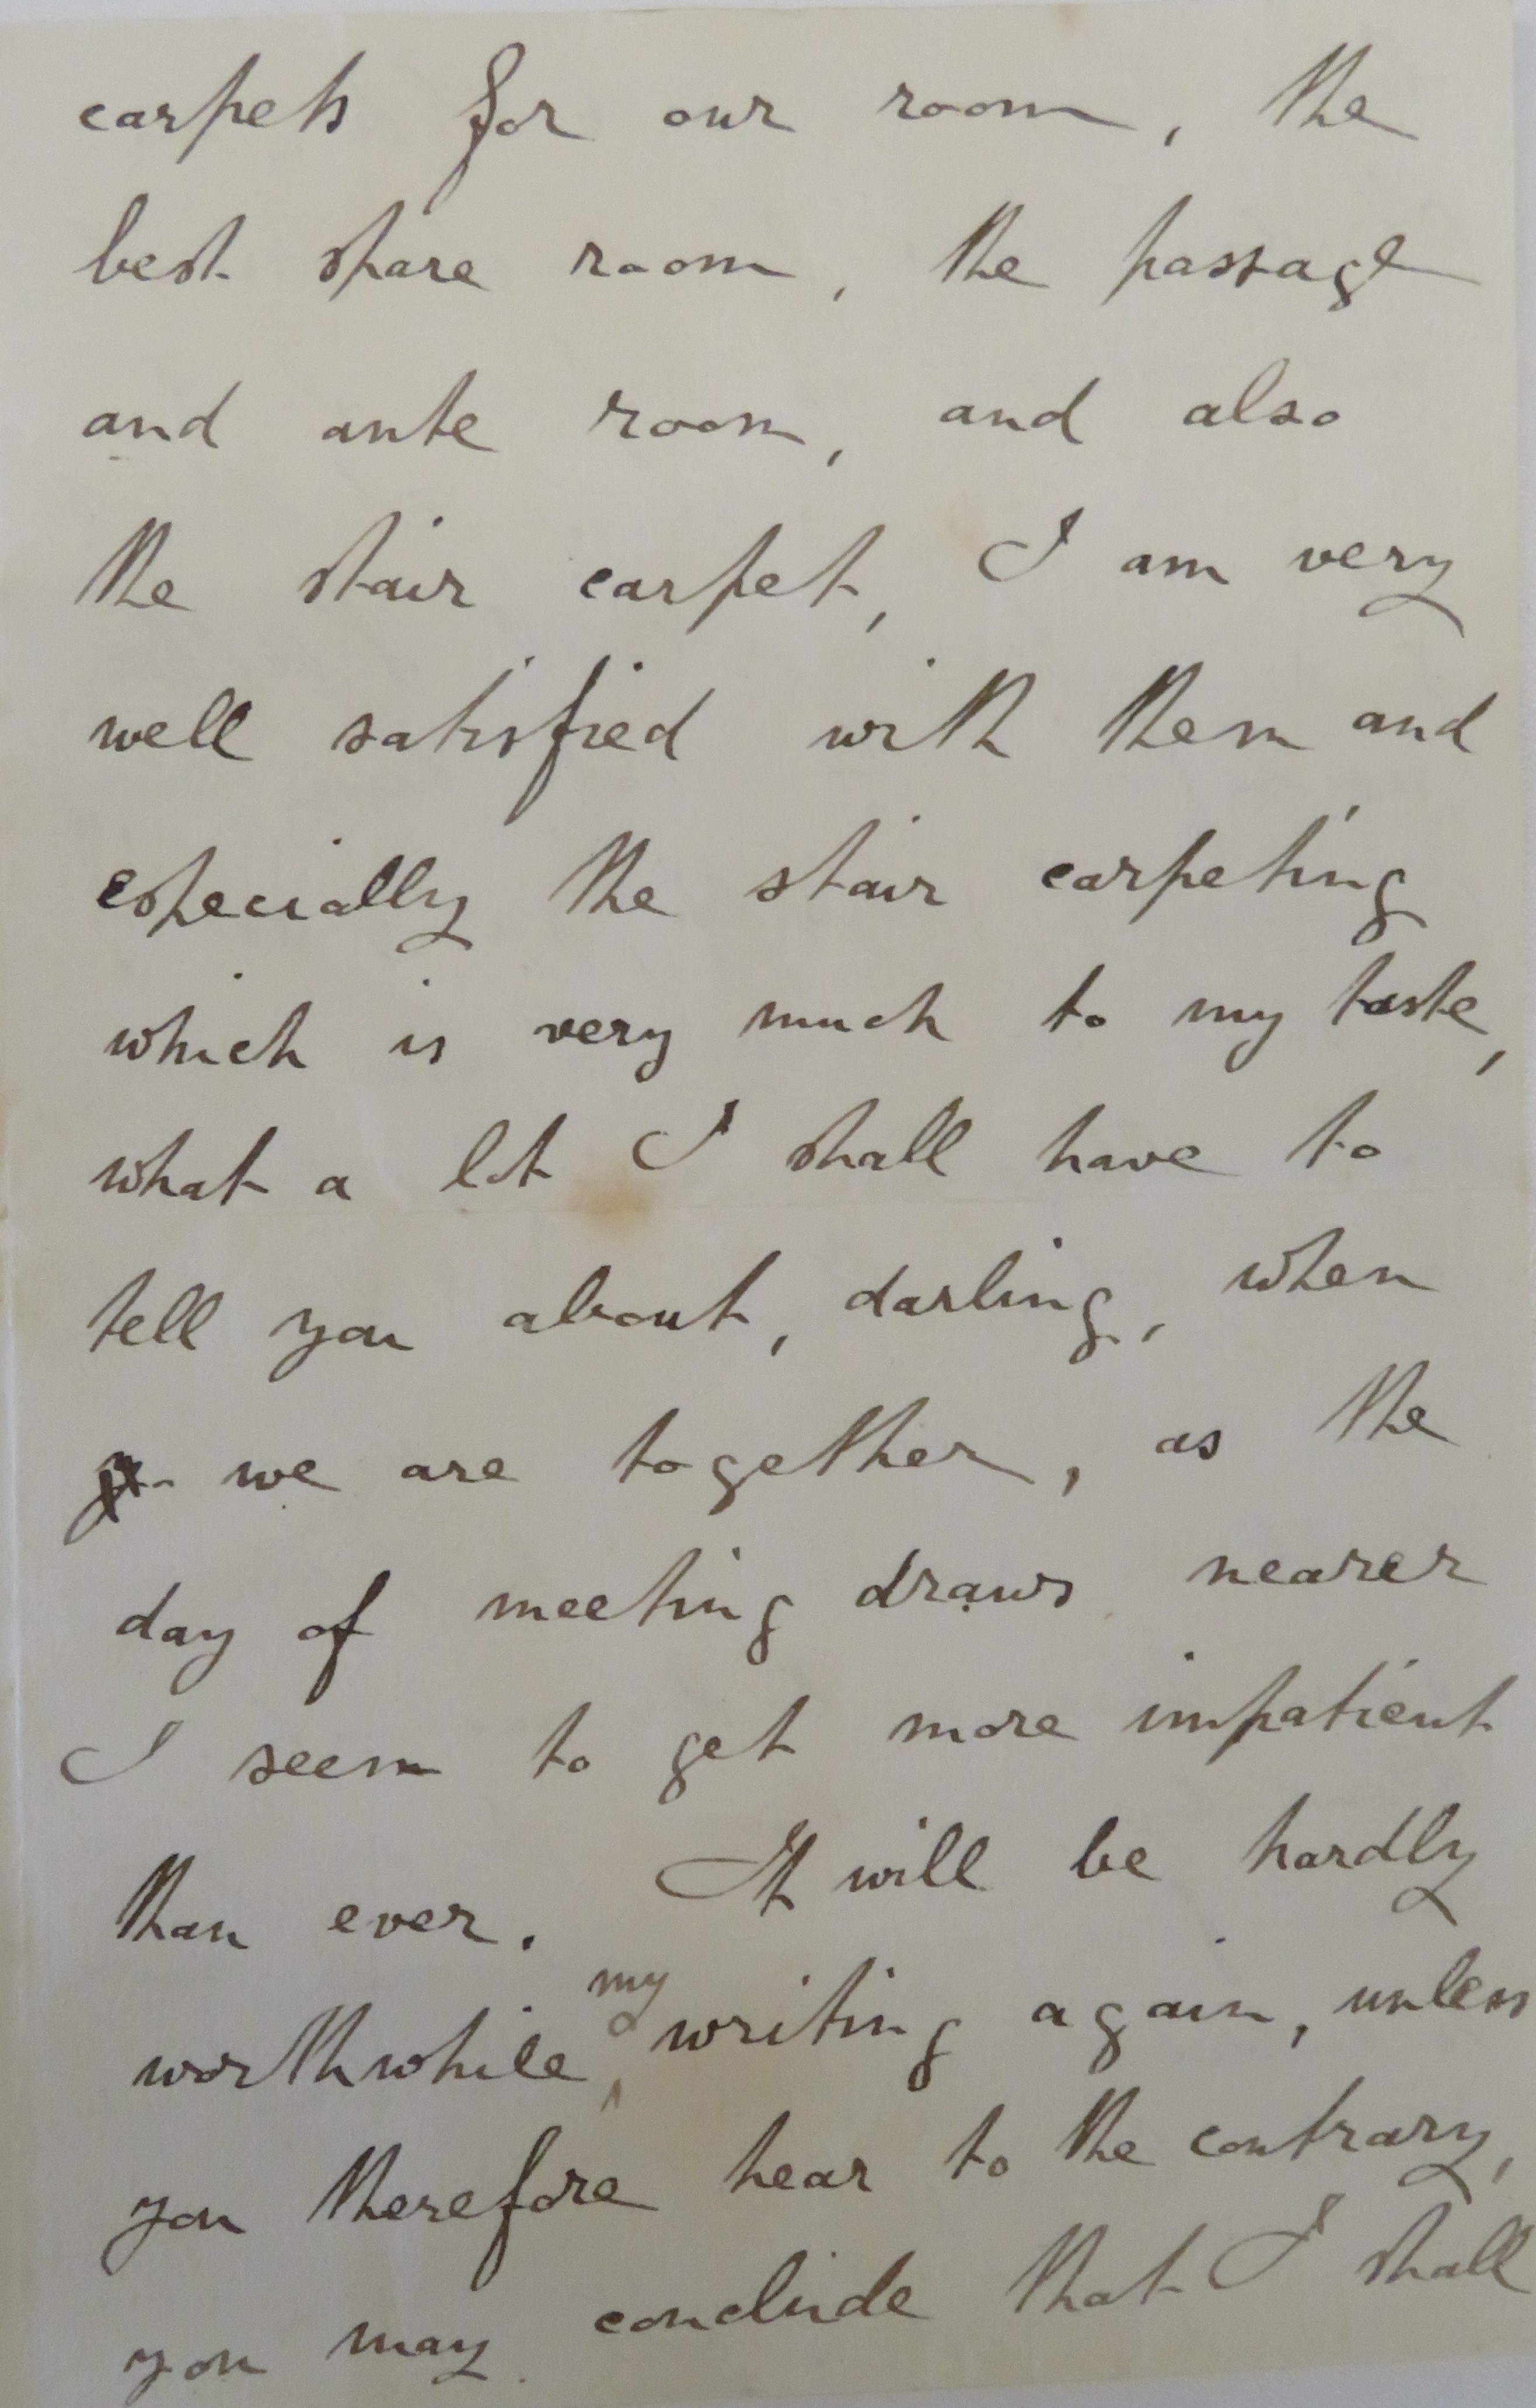 carpets for our room, the
best spare room, the passage
and ante room, and also
the stair carpet, I am very
well satisfied with them and
especially the stair carpeting
which is very much to my taste,
what a lot I shall have to
tell you about, darling, when
we are together, as the
day of meeting draws nearer
I seem to get more impatient
than ever. It will be hardly
worthwhile my writing again, unless
you therefore hear to the contrary,
you may conclude that I shall